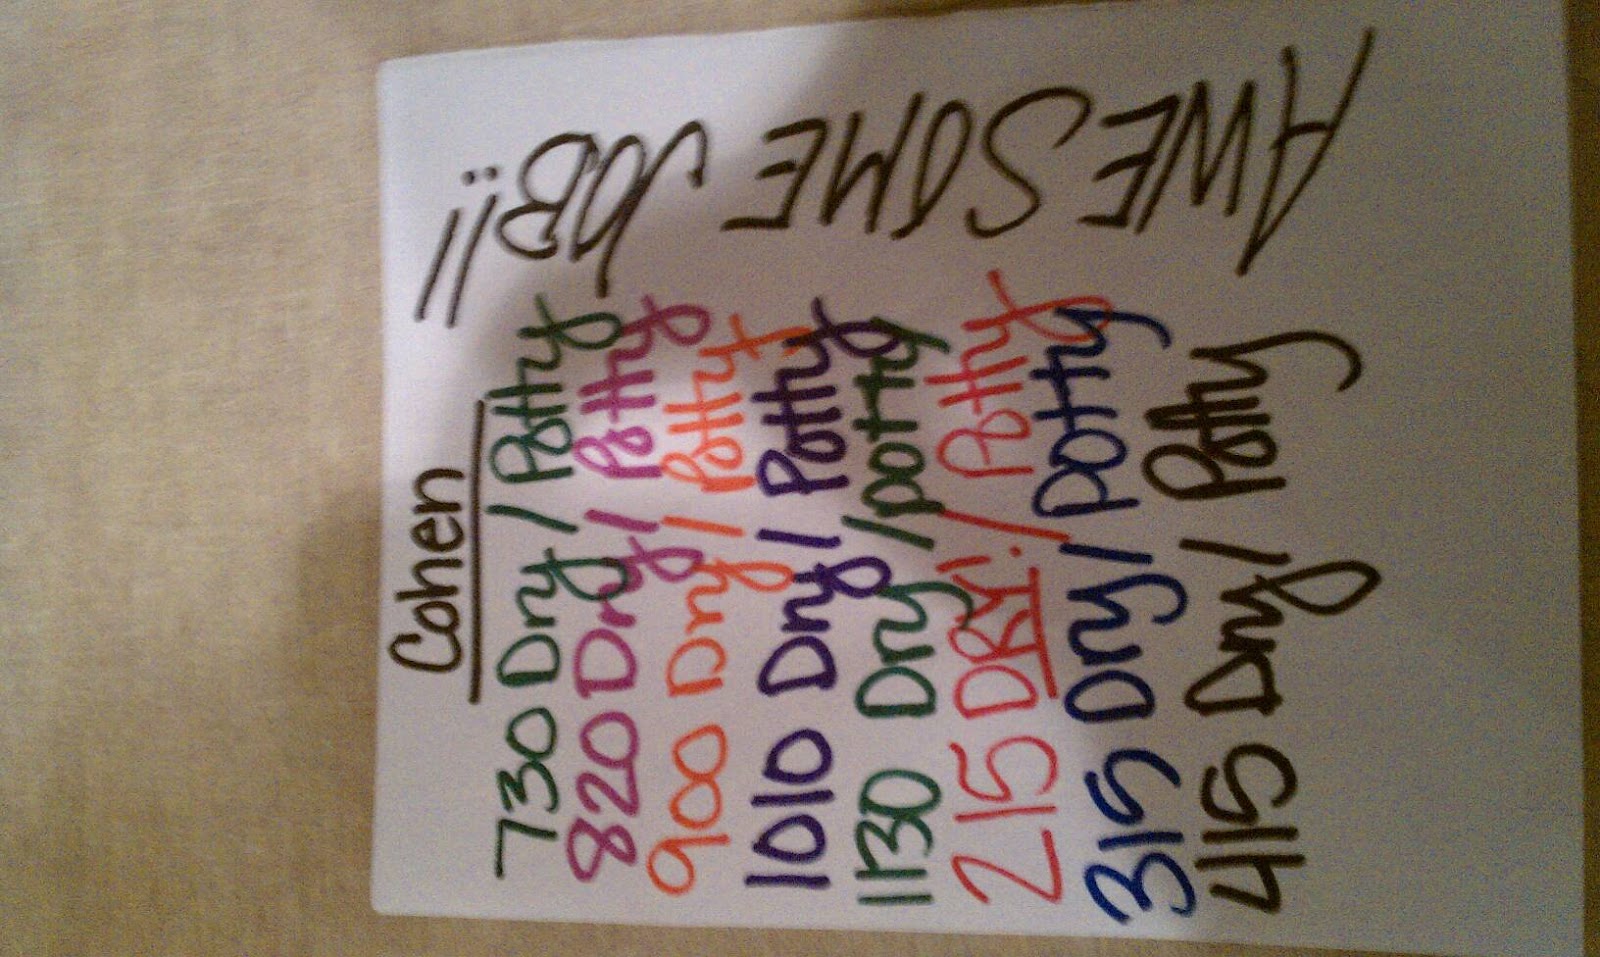 Cohen
730 Dry / Potty
820 Dry / Potty
900 Dry / Potty
1010 Dry / Potty
1130 Dry / potty
215 DRY! / Potty
315 Dry / potty
415 Dry / Potty
AWESOME JOB!!